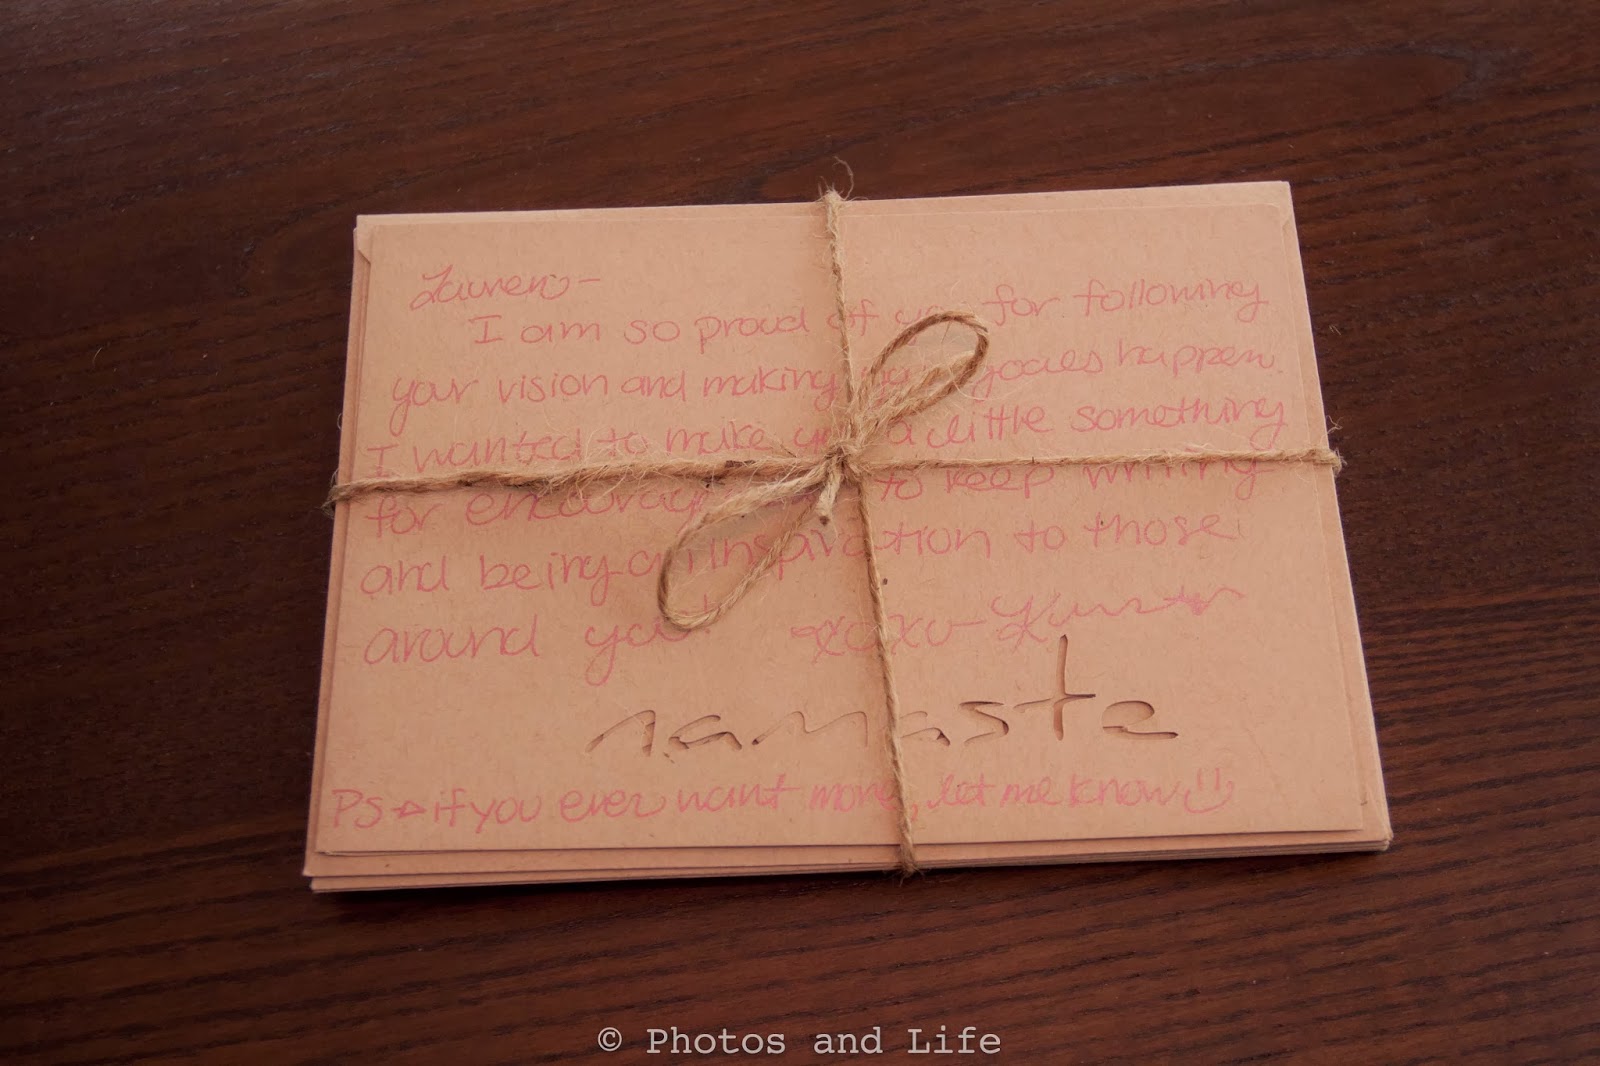 Lauren –
I am so proud of you for following
your vision and making your goales happen.
I wanted to make you a little something
for encouragement to keep writing
and being an inspiration to those
around you! xoxo – Kirstin
namaste
PS → if you ever want more, let me know
© Photos and Life